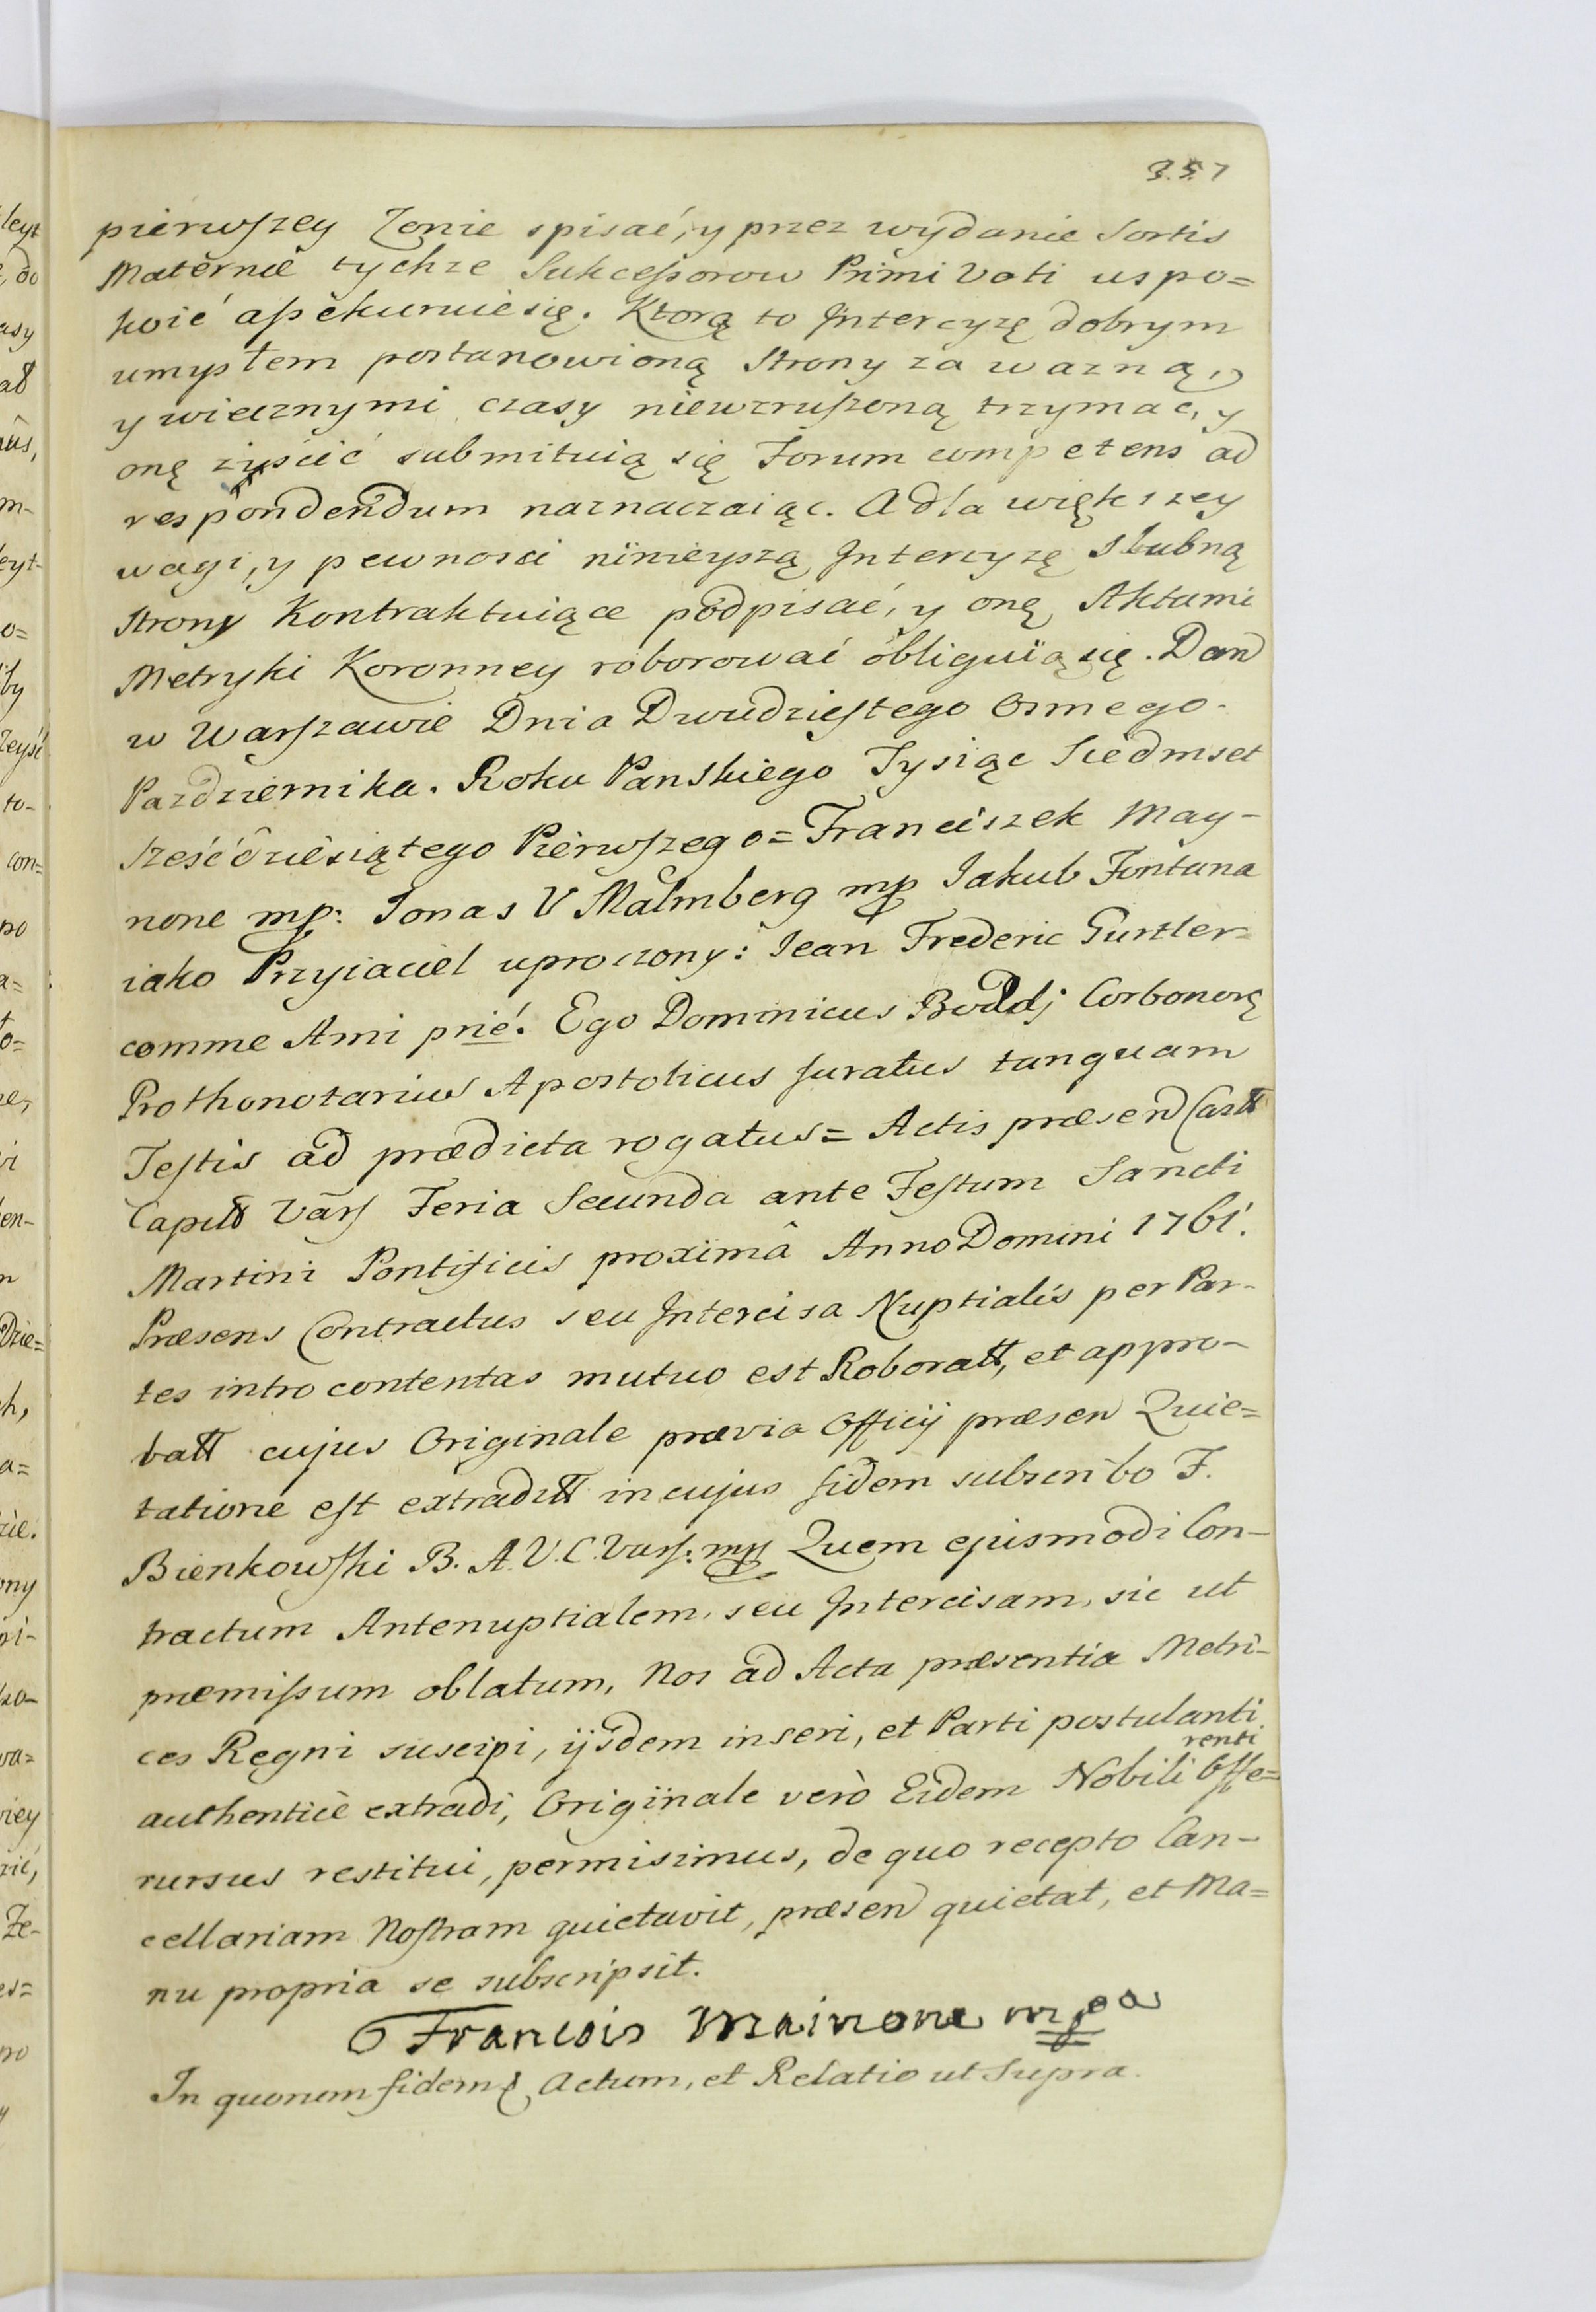 357
pierwszey Zonie spisać, y przez wydanie Sortis
Maternæ tychże Sukcessorow Primi Voti uspo=
koić assekuruie się. Ktorą to Intercyzę dobrym
umysłem postanowioną Strony za wazną,
y wiecznymi czasy niewzruszoną trzymac, y
onę ziścić submituią się Forum competens ad
respondendum naznaczaiąc. A dla większey
wagi, y pewnosci ninieyszą Intercyzę slubną
Strony Kontraktuiące podpisać, y onę Aktami
Metryki Koronney roborować obliguią się. Dan
w Warszawie Dnia Dwudziestego Osmego
Pazdziernika. Roku Panskiego Tysiąc Siedmset
sześćdziesiątego Pierwszego = Franciszek May-
none mp: Jonas V Malmberg mp Jakub Fontana
iako Przyiaciel uproszony: Jean Frederic Gurtler
comme Ami prié. Ego Dominicus Boddj
Prothonotarius Apostolicus Juratus tanquam
Testis ad prædicta rogatus = Actis præsen Castt
Capitt Vars Feria Secunda ante Festum Sancti
Martini Pontificis proximâ Anno Domini 1761.
Præsens Contractus seu Intercisa Nuptialis per Par-
tes intro contentas mutuo est Roboratt, et appro-
batt cujus Originale prævia Officij præsen Quie=
tatione est extraditt in cujus fidem subscribo F.
Bienkowski B. A. V. C. Vars: mp Quem ejusmodi Con-
tractum Antenuptialem, seu Intercisam, sic ut
præmissum oblatum, Nos ad Acta præsentia Metri-
ces Regni suscipi, ijsdem inseri, et Parti postulanti
authenticè extradi, Originale verò Eidem Nobili Offe=
renti
rursus restitui, permisimus, de quo recepto Can-
cellariam Nostram quietavit, præsen quietat, et Ma=
nu propria se subscripsit.
Francois Mainone mpa
In quorum fidem Actum, et Relatio ut Supra.